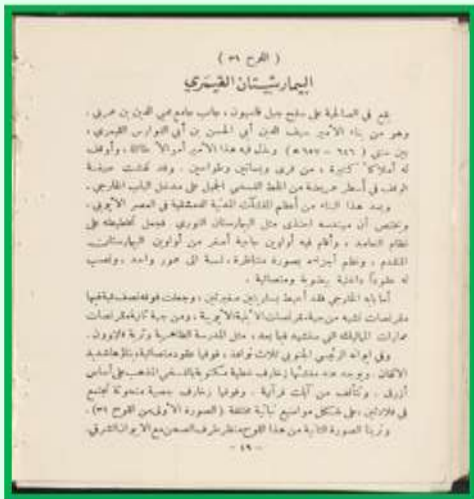 ( اللوح ٣٩ )
البيمارستان القيمري
يقع في الصالحية على سفح جبل قاسيون ، جانب جامع محي الدين بن عربي ،
وهو من بناء الأمير سيف الدين أبي الحسن بن أبي الفوارس القيمري ،
بين سنتي ( ٦٤٦ – ٦٥٧ هـ ) وبذل فيه هذا الأمير أموالاً طائلة ، وأوقف
له أملاكاً كثيرة ، من قرى وبساتين وطواحين . وقد نقشت صيغة
الوقف في أسطر عريضة من الخط النسخي الجميل على مدخل الباب الخارجي .
ويعد هذا البناء من أعظم المنشآت المدنية الدمشقية في العصر الأيوبي .
ونختص أن مهندسه احتذى مثل البيمارستان النوري . فجعل تخطيطه على
نظام التعامد ، وأقام فيه أواوين جانبية أصغر من أواوين البيمارستان
المتقدم ، ونظم أجزاءه بصورة متناظرة ، نسبة الى محور واحد ، ونصب
له عقوداً داخلية بيضوية ومتصالبة .
أما بابه الخارجي فقد أحيط بساريتين صغيرتين ، وجعلت فوقه نصف قبة فيها
مقرنصات تشبه من جهة مقرنصات الأبنية الأيوبية ، ومن جهة ثانية مقرنصات
عمارات المماليك التي ستشيد فيما بعد ، مثل المدرسة الظاهرية وتربة قلاوون .
وفي ايوانه الرئيسي الجنوبي ثلاث نوافذ ، فوقها عقود متصالبة ، بناؤها شديد
الاتقان . ويوجد عند منشئها زخارف خطية مكتوبة بالنسخي المذهب على أساس
أزرق . وتتألف من آيات قرآنية . وفوقها زخارف جصية منحوتة تجتمع
في قلادتين ، على شكل مواضيع نباتية مختلفة ( الصورة الأولى من اللوح ٣٩ ) .
وترينا الصورة الثانية من هذا اللوح منظر طرف الصحن مع الايوان الشرقي .
– ٤٩ –